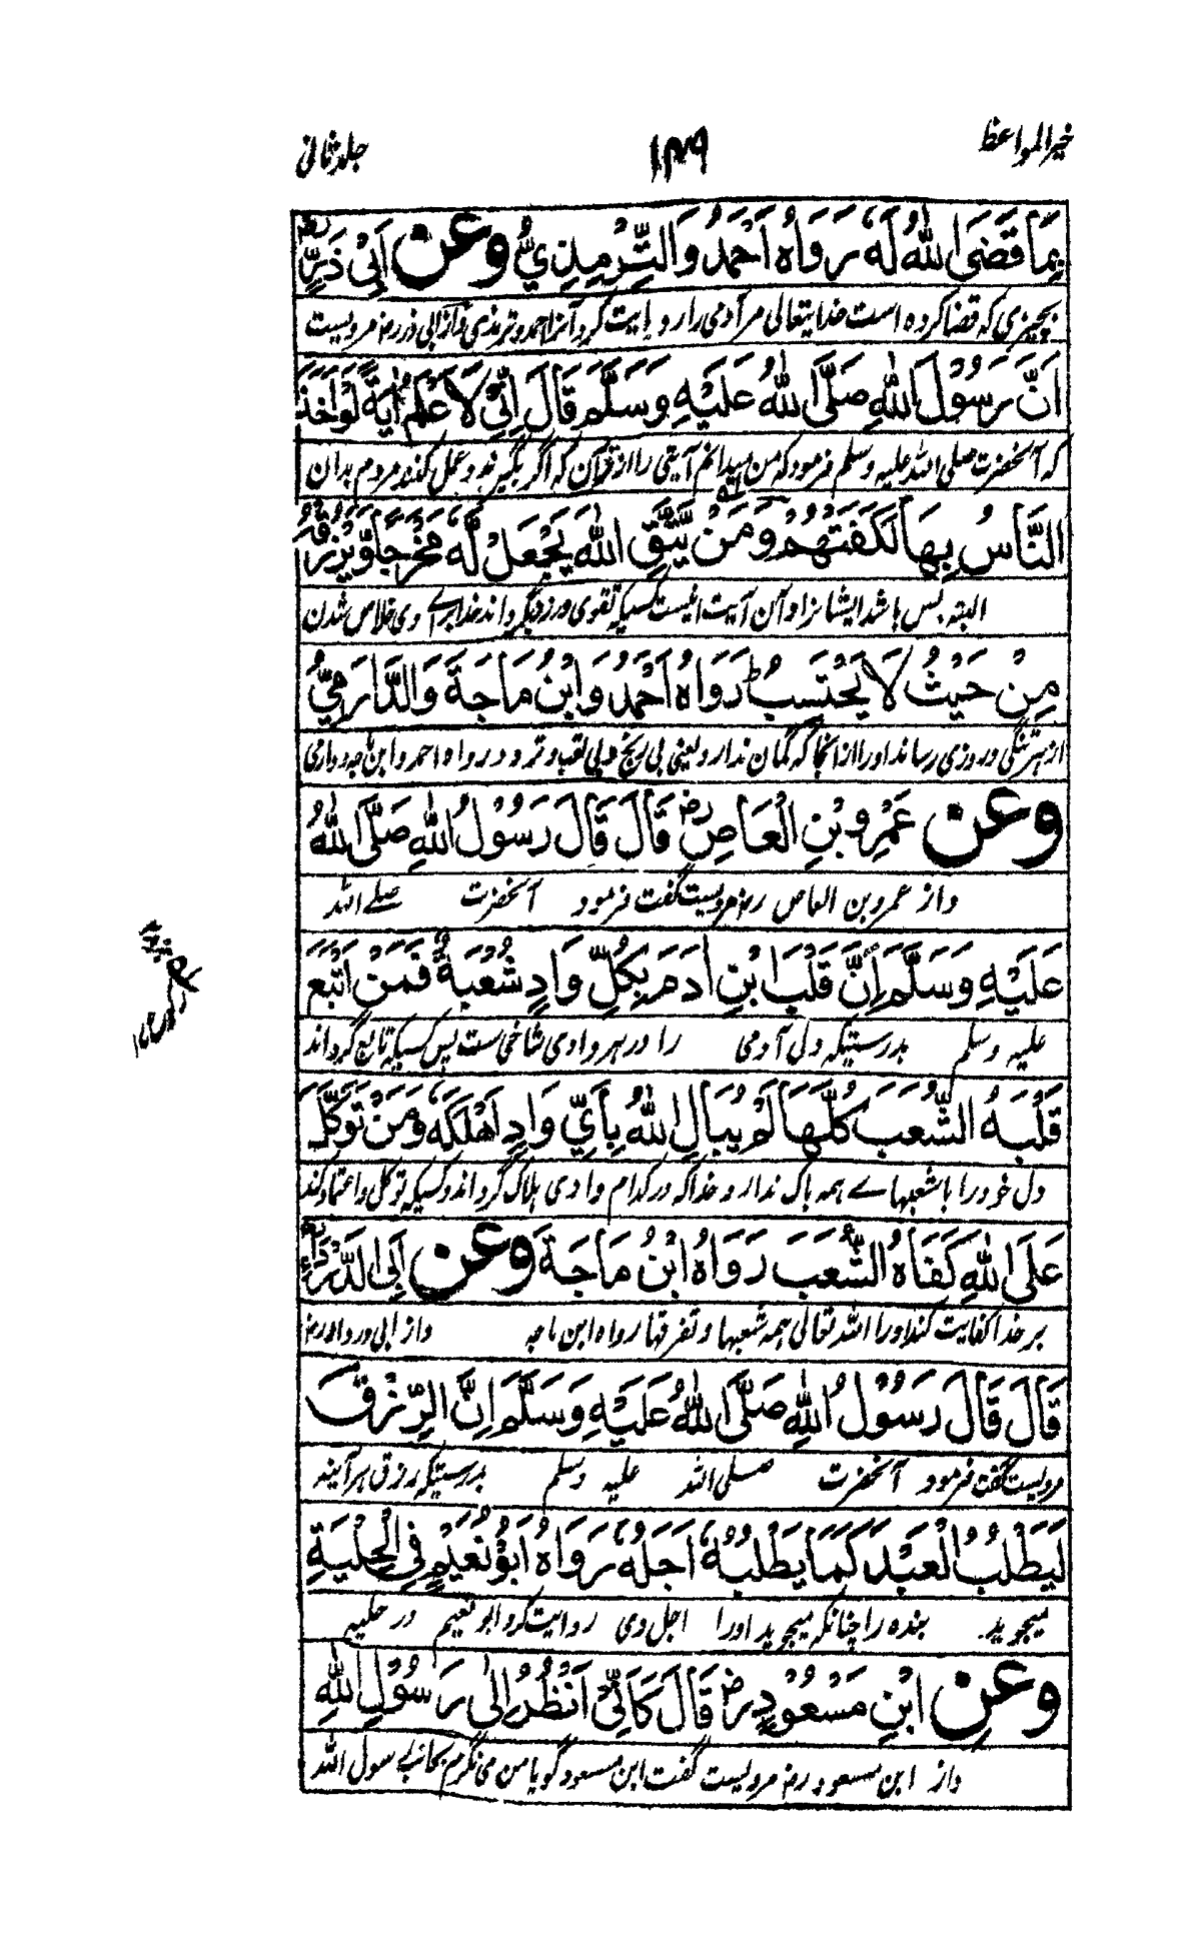 خیر المواعظ
۱۴۹
جلد ثانی
بِمَا قَضَى اللهُ لَهُ رَوَاهُ اَحْمَدُ وَالتِّرْمِذِيُّ وعن اَبِيْ ذَرٍّ رض
بچیزی که قضا کرده است خدایتعالی مر آدمی را روایت کرد آنرا احمد و ترمذی و از ابی ذر رض مرویست
اَنَّ رَسُوْلَ اللهِ صَلَّى اللهُ عَلَيْهِ وَسَلَّمَ قَالَ اِنِّيْ لَاَعْلَمُ اٰيَةً لَوْ اَخَذَ
که آنحضرت صلی الله علیه وسلم فرمود که من میدانم آیتی را از قرآن که اگر بگیرند و عمل کنند مردم بدان
النَّاسُ بِهَا لَكَفَتْهُمْ وَمَنْ يَّتَّقِ اللهَ يَجْعَلْ لَّهُ مَخْرَجًا وَّيَرْزُقْهُ
البته بس باشد ایشانرا و آن آیت اینست کسیکه تقوی ورزد بگرداند خدا برای وی خلاص شدن
مِنْ حَيْثُ لَا يَحْتَسِبُ ط رَوَاهُ اَحْمَدُ وَابْنُ مَاجَةَ وَالدَّارَمِيُّ
از هر تنگی و روزی رساند او را از آنجا که گمان ندارد یعنی بی رنج و بی تعب و تردد رواه احمد و ابن ماجه و دارمی
وعن عَمْرِو بْنِ الْعَاصِ رض قَالَ قَالَ رَسُوْلُ اللهِ صَلَّى اللهُ
و از عمرو بن العاص رض مرویست گفت فرمود آنحضرت صلے الله
عَلَيْهِ وَسَلَّمَ اِنَّ قَلْبَ ابْنِ اٰدَمَ بِكُلِّ وَادٍ شُعْبَةٌ فَمَنْ اَتْبَعَ
علیه وسلم بدرستیکه دل آدمی را در هر وادی شاخی ست پس کسیکه تابع گرداند
قَلْبَهُ الشُّعَبَ كُلَّهَا لَمْ يُبَالِ اللهُ بِاَيِّ وَادٍ اَهْلَكَهُ وَمَنْ تَوَكَّلَ
دل خود را با شعبهاے همه باک ندارد خدا که در کدام وادی هلاک گرداند و کسیکه توکل و اعتماد کند
عَلَى اللهِ كَفَاهُ الشُّعَبَ رَوَاهُ ابْنُ مَاجَةَ وعن اَبِي الدَّرْدَاءِ رض
بر خدا کفایت کند او را الله تعالی همه شعبها و تفرقها رواه ابن ماجه و از ابی دردا و رض
قَالَ قَالَ رَسُوْلُ اللهِ صَلَّى اللهُ عَلَيْهِ وَسَلَّمَ اِنَّ الرِّزْقَ
مرویست گفت فرمود آنحضرت صلی الله علیه وسلم بدرستیکه رزق هر آینه
لَيَطْلُبُ الْعَبْدَ كَمَا يَطْلُبُهُ اَجَلُهُ رَوَاهُ اَبُوْنُعَيْمٍ فِي الْحِلْيَةِ
میجوید بنده را چنانکه میجوید او را اجل وی روایت کرد ابو نعیم در حلیه
وعن ابْنِ مَسْعُوْدٍ رض قَالَ كَاَنِّيْ اَنْظُرُ اِلٰى رَسُوْلِ اللهِ
و از ابن مسعود رض مرویست گفت ابن مسعود گویا من می نگرم بجانب رسول الله